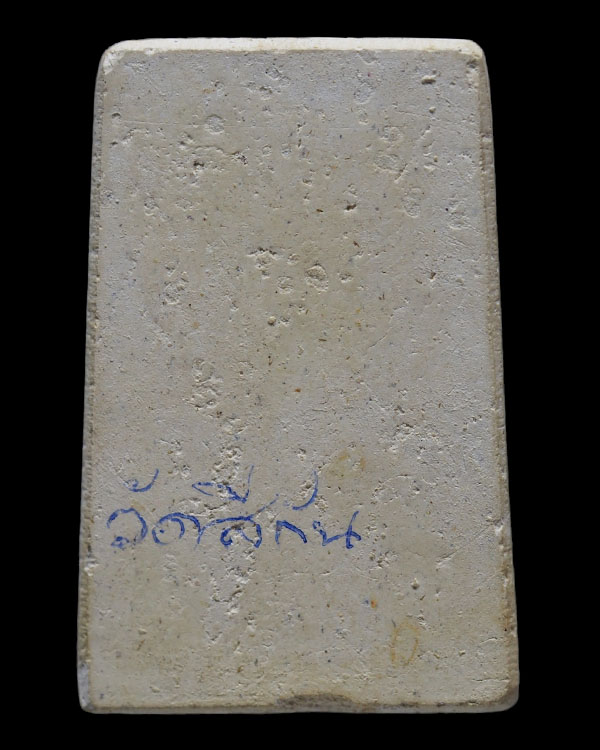 วัดสีกัน